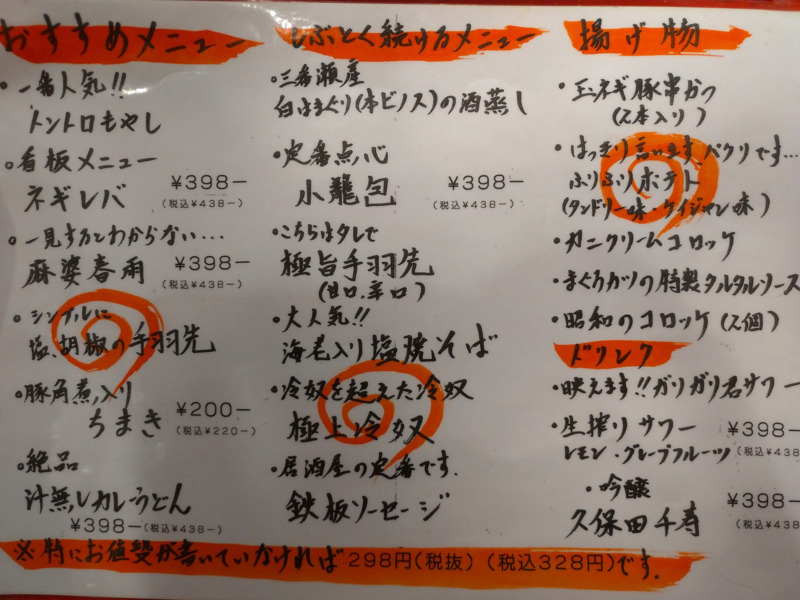 おすすめメニュー
・一番人気!!
トントロもやし
・看板メニュー
ネギレバ ¥398-
(税込¥438-)
・一見するとわからない...
麻婆春雨 ¥398-
(税込¥438-)
・シンプルに
塩、胡椒の手羽先
・豚角煮入り
ちまき ¥200-
(税込¥220-)
・絶品
汁無しカレーうどん
¥398-(税込¥438-)
しぶとく続けるメニュー
・三番瀬産
白はまぐり(本ビノス)の酒蒸し
・定番点心
小籠包 ¥398-
(税込¥438-)
・こちらはタレで
極旨手羽先
(甘口、辛口)
・大人気!!
海老入り塩焼そば
・冷奴を超えた冷奴
極上冷奴
・居酒屋の定番です.
鉄板ソーセージ
揚げ物
・玉ネギ豚串かつ
(2本入り)
・はっきり言います パクリです...
ふりふりポテト
(タンドリー味・ケイジャン味)
・カニクリームコロッケ
・まぐろカツの特製タルタルソース
・昭和のコロッケ(2個)
ドリンク
・映えます!!ガリガリ君サワー
・生搾りサワー ¥398-
レモン・グレープフルーツ (税込¥438
・吟醸
久保田千寿 ¥398-
(税込¥438
※特にお値段が書いていなければ 298円(税抜)(税込328円)です.